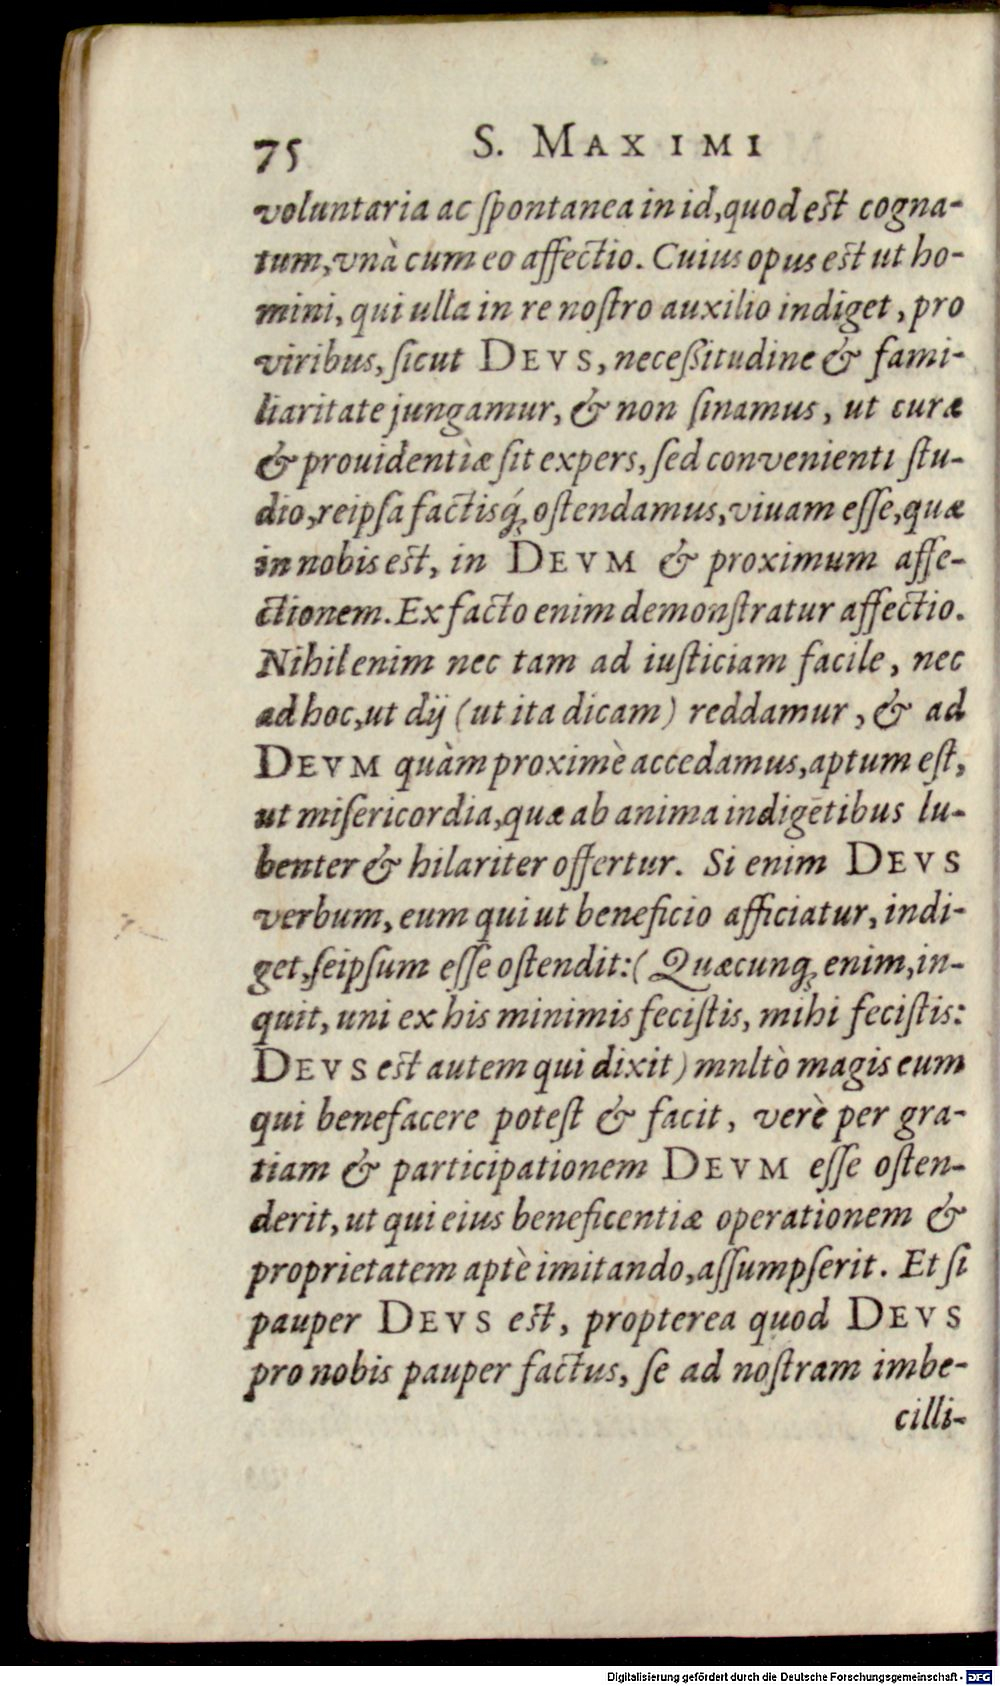 75 S. MAXIMI
voluntaria ac ſpontanea in id, quod eſt cogna-
tum, vnà cum eo affectio. Cuius opus eſt ut ho-
mini, qui ulla in re noſtro auxilio indiget, pro
viribus, ſicut DEVS, neceßitudine & fami-
liaritate jungamur, & non ſinamus, ut curæ
& prouidentiæ ſit expers, ſed convenienti ſtu-
dio, reipſa factisq́; oſtendamus, viuam eſſe, quæ
in nobis eſt, in DEVM & proximum affe-
ctionem. Ex facto enim demonſtratur affectio.
Nihil enim nec tam ad iuſticiam facile, nec
ad hoc, ut dij (ut ita dicam) reddamur, & ad
DEVM quàm proximè accedamus, aptum eſt,
ut miſericordia, quæ ab anima indigētibus lu-
benter & hilariter offertur. Si enim DEVS
verbum, eum qui ut beneficio afficiatur, indi-
get, ſeipſum eſſe oſtendit: (Quæcunq; enim, in-
quit, uni ex his minimis feciſtis, mihi feciſtis:
DEVS eſt autem qui dixit) mnltò magis eum
qui benefacere poteſt & facit, verè per gra-
tiam & participationem DEVM eſſe oſten-
derit, ut qui eius beneficentiæ operationem &
proprietatem aptè imitando, aſſumpſerit. Et ſi
pauper DEVS eſt, propterea quod DEVS
pro nobis pauper factus, ſe ad noſtram imbe-
cilli-
Digitalisierung gefördert durch die Deutsche Forschungsgemeinschaft - DFG